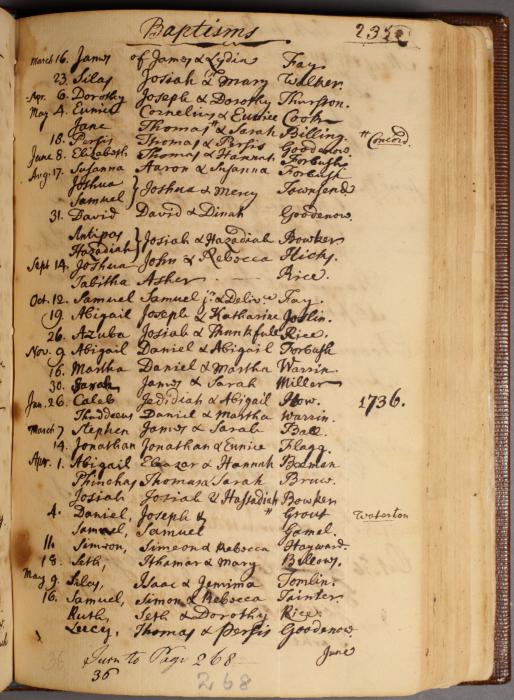 Baptisms 235
March 16. James of James & Lydia Fay.
23. Silas Josiah & Mary Walker.
Apr. 6. Dorothy Joseph & Dorothy Thurston.
May 4. Eunice Cornelius & Eunice Cook
Jane Thomas " & Sarah Billing. " Concord.
18. Persis Thomas & Persis Goodenow
June 8. Elizabeth Thomas & Hannah Forbush
Aug. 17. Susanna Aaron & Susanna Forbush
Joshua
Samuel } Joshua & Mercy Townsend
31. David David & Dinah Goodenow.
Antipas
Hazadiah } Josiah & Hazadiah Bowker
Sept 14. Joshua John & Rebecca Hicks
Tabitha Asher Rice.
Oct. 12. Samuel Samuel jr. & Delivce Fay.
19. Abigail Joseph & Katharine Joslin.
26. Azuba Josiah & Thankfull Rice.
Nov. 9 Abigail Daniel & Abigail Forbush
16. Martha Daniel & Martha Warrin
30. Sarah James & Sarah Miller
Jan. 26. Caleb Jedidiah & Abigail How. 1736.
Thaddeus Daniel & Martha Warrin.
March 7 Stephen James & Sarah Ball.
14. Jonathan Jonathan & Eunice Flagg.
Apr. 1. Abigail Eleazar & Hannah Beeman
Phinehas Thomas & Sarah Bruce.
Josiah Josiah & Hassadiah Bowker
4. Daniel, Joseph & " Grout Waterton
Samuel, Samuel Gamel.
11. Simeon, Simeon & Rebecca Hayward.
18. Seth, Ithamar & Mary Bellows.
May 9. Silas, Isaac & Jemima Tomlin.
16. Samuel, Simon & Rebecca Tainter.
Ruth, Seth & Dorothy Rice.
Lucy, Thomas & Persis Goodenow.
36 Turn to Page 268 June
36 268